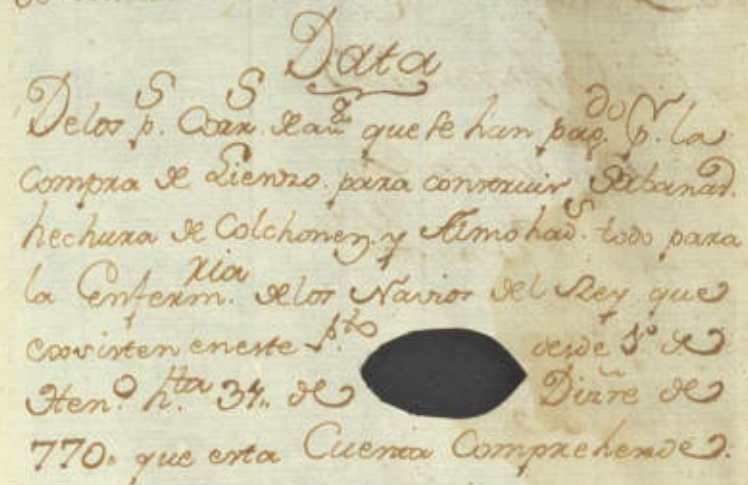 Data
Delos p.s Corr.s de an.ga que se han pag.do p.r la
Compra de Lienzo. para construir Sabanas.
hechura de Colchones. y Almohad.s todo para
la Enferm.ria delos Navios del Rey que
existen en este p.to desde 1.o de
Hen.o h.ta 31. de Diz.re de
770. que esta Cuenta Comprehende.